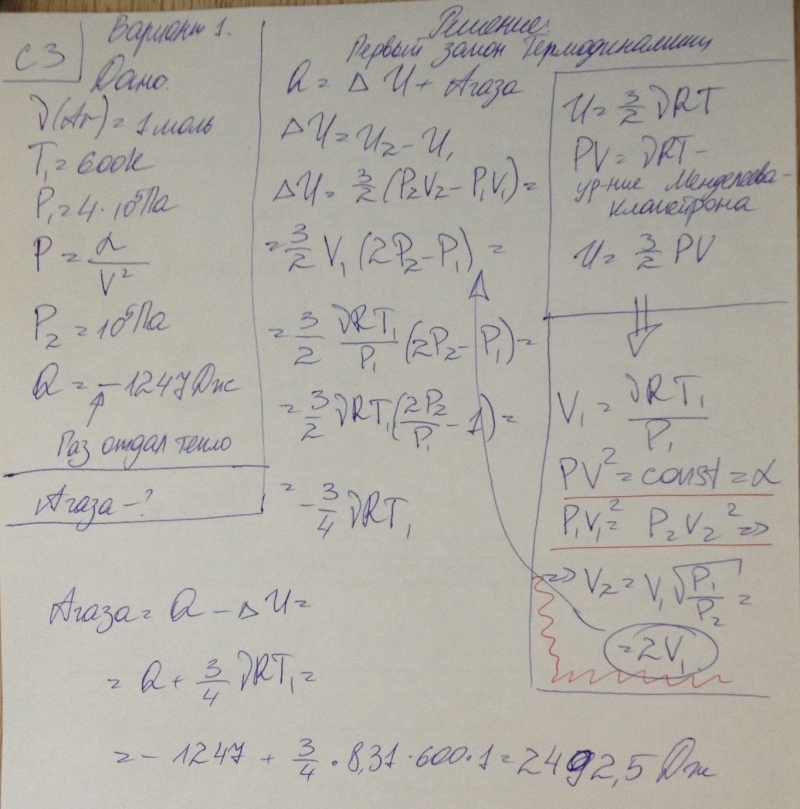 С3
Вариант 1.
Дано:
ν(Ar) = 1 моль
T₁ = 600К
P₁ = 4·10⁵Па
P = α/V²
P₂ = 10⁵Па
Q = -1247Дж
Газ отдал тепло
Aгаза - ?
Решение:
Первый закон Термодинамики
Q = ΔU + Aгаза
ΔU = U₂ - U₁
ΔU = 3/2 (P₂V₂ - P₁V₁) =
= 3/2 V₁ (2P₂ - P₁) =
= 3/2 νRT₁/P₁ (2P₂ - P₁) =
= 3/2 νRT₁ (2P₂/P₁ - 1) =
= - 3/4 νRT₁
U = 3/2 νRT
PV = νRT -
ур-ние Менделеева-
клапейрона
U = 3/2 PV
⇓
V₁ = νRT₁/P₁
PV² = const = α
P₁V₁² = P₂V₂² =>
=> V₂ = V₁ √(P₁/P₂) =
= 2V₁
Aгаза = Q - ΔU =
= Q + 3/4 νRT₁ =
= - 1247 + 3/4 · 8,31 · 600 · 1 = 2492,5 Дж